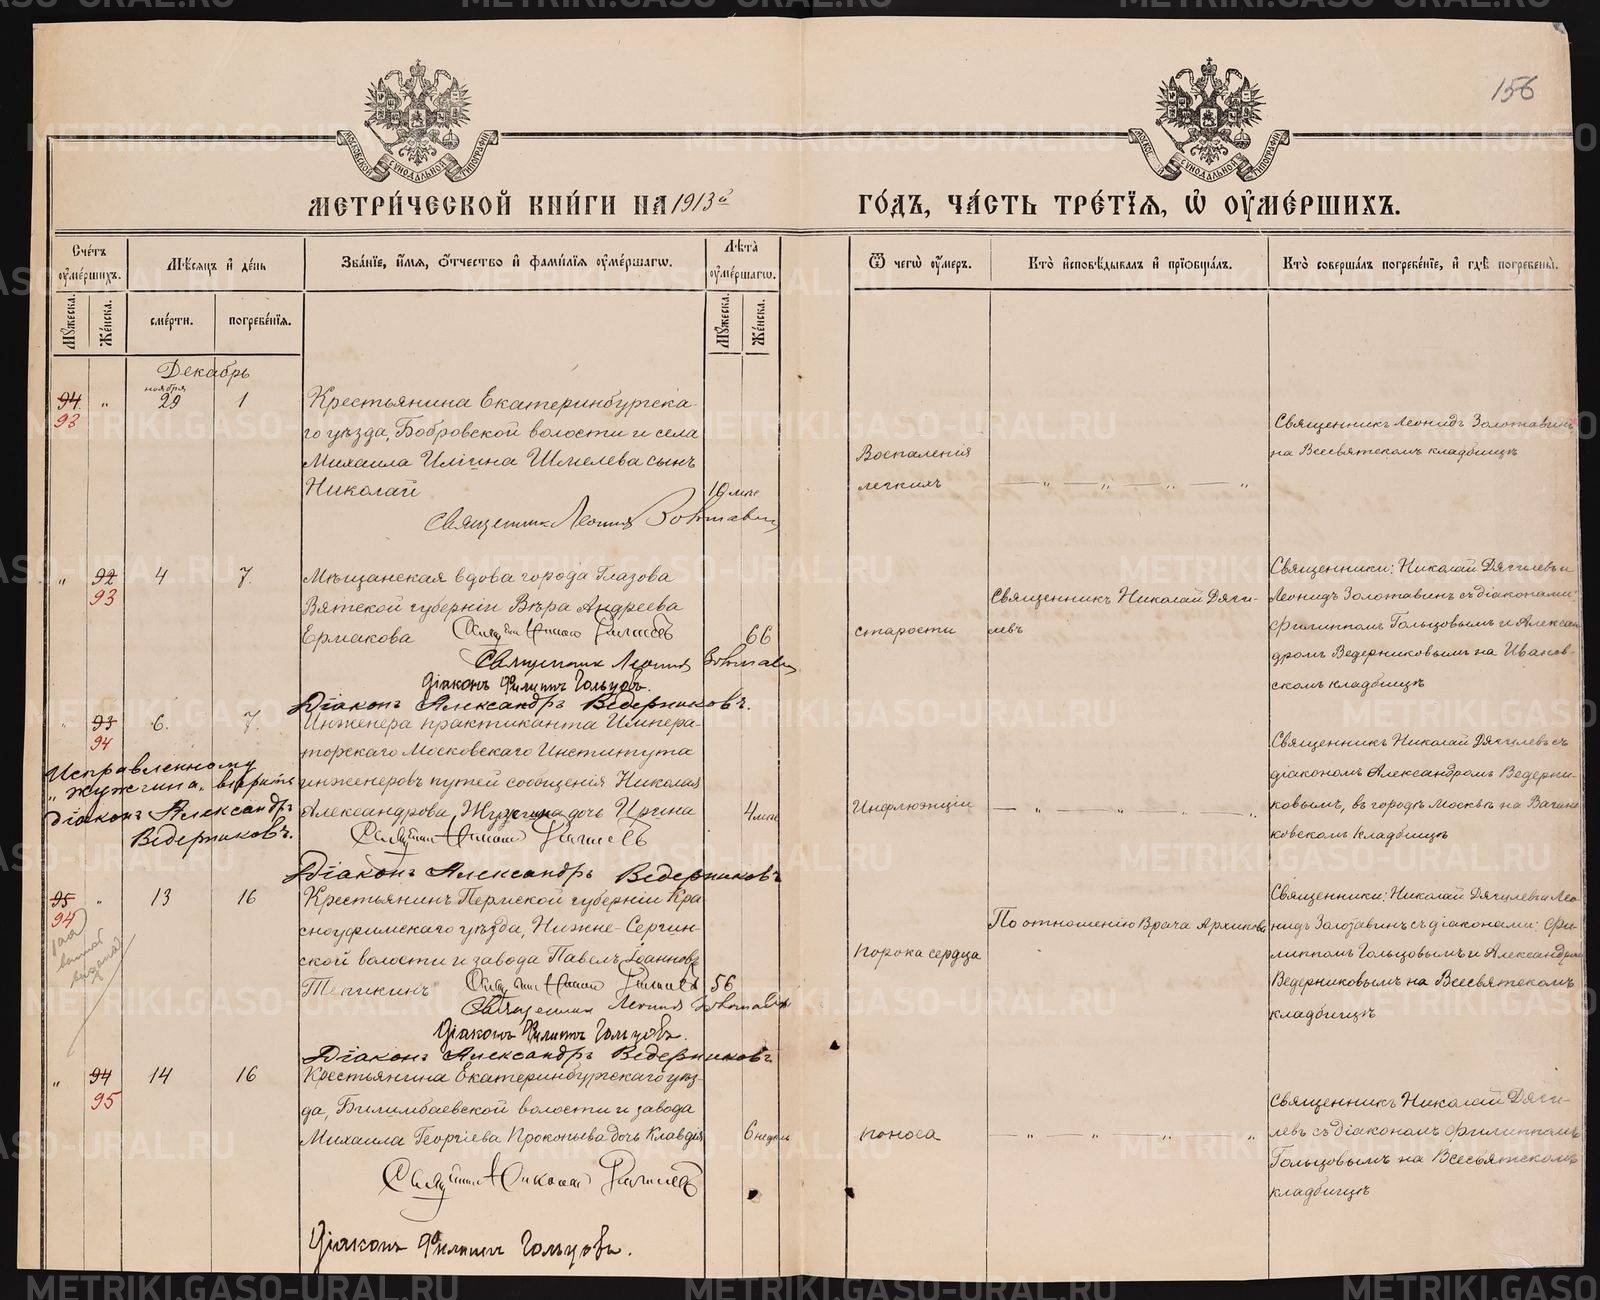 156
МОСКОВСКОЙ СѴНОДАЛЬНОЙ ТИПОГРАФІИ
МОСКОВ. СѴНОДАЛЬНОЙ ТИПОГРАФІИ
МЕТРИ́ЧЕСКОЙ КНИ́ГИ НА 1913й
ГО́ДЪ, ЧА́СТЬ ТРЕ́ТЇѦ, Ѡ ОУМЕ́РШИХЪ.
Сче́тъ оумершихъ.
Мѣсѧцъ и де́нь
Зва́нїе, и́мѧ, о́тчество и фами́лїѧ оуме́ршагѡ.
Лѣта̀ оуме́ршагѡ.
Ѿ чегѡ̀ оу́меръ.
Кто̀ исповѣ́дывалъ и прїобща́лъ.
Кто̀ соверша́лъ погребе́нїе, и гдѣ̀ погребены̀.
Мꙋжеска. Же́нска.
сме́рти. погребе́нїѧ.
Мꙋжеска. Же́нска.
Декабрь
94 93 „ ноября 29 1
Крестьянина Екатеринбургска-
го уѣзда, Бобровской волости и села
Михаила Ильина Шмелева сынъ
Николай
Священник Леонид Золотавин
Воспаленія
легкихъ
Священникъ Леонидъ Золотавинъ
на Всесвятскомъ кладбищѣ
„ 92 93 4 7
Мѣщанская вдова города Глазова
Вятской губерніи Вѣра Андреева
Ермакова 66
Священник Леонид Золотавин
Діаконъ Филиппъ Гольцовъ.
Діаконъ Александръ Ведерниковъ.
старости
Священникъ Николай Дяги-
левъ
Священники: Николай Дягилевъ и
Леонидъ Золотавинъ съ діаконами:
Филиппомъ Гольцовымъ и Алексан
дромъ Ведерниковымъ на Иванов-
скомъ кладбищѣ
„ 93 94 6 7
Инженера практиканта Импера-
торскаго Московскаго Института
инженеровъ путей сообщенія Николая
Александрова Жужгина дочь Ирина 4 мѣс
Исправленному
„Жужгина„ вѣрить
Діаконъ Александръ
Ведерниковъ.
Діаконъ Александръ Ведерниковъ
Инфлюэнціи
Священникъ Николай Дягилевъ съ
діакономъ Александромъ Ведерни-
ковымъ, въ городѣ Москвѣ на Вагань
ковскомъ кладбищѣ
95 94 „ 13 16
Крестьянинъ Пермской губерніи Кра
сноуфимскаго уѣзда, Нижне-Сергин-
ской волости и завода Павелъ Іоанновъ
56
Священник Леонид Золотавин
Діаконъ Филиппъ Гольцовъ.
Діаконъ Александръ Ведерниковъ
порока сердца
По отношенію Врача Архипова
Священники: Николай Дягилевъ и Лео
нидъ Золотавинъ съ діаконами: Фи-
липпомъ Гольцовымъ и Александромъ
Ведерниковымъ на Всесвятскомъ
кладбищѣ
„ 94 95 14 16
Крестьянина Екатеринбургскаго уѣз-
да, Билимбаевской волости и завода
Михаила Георгіева Прокопьева дочь Клавдія 6 недѣль
Діаконъ Филиппъ Гольцовъ.
поноса
Священникъ Николай Дяги-
левъ съ діакономъ Филиппомъ
Гольцовымъ на Всесвятскомъ
кладбищѣ
METRIKI.GASO-URAL.RU